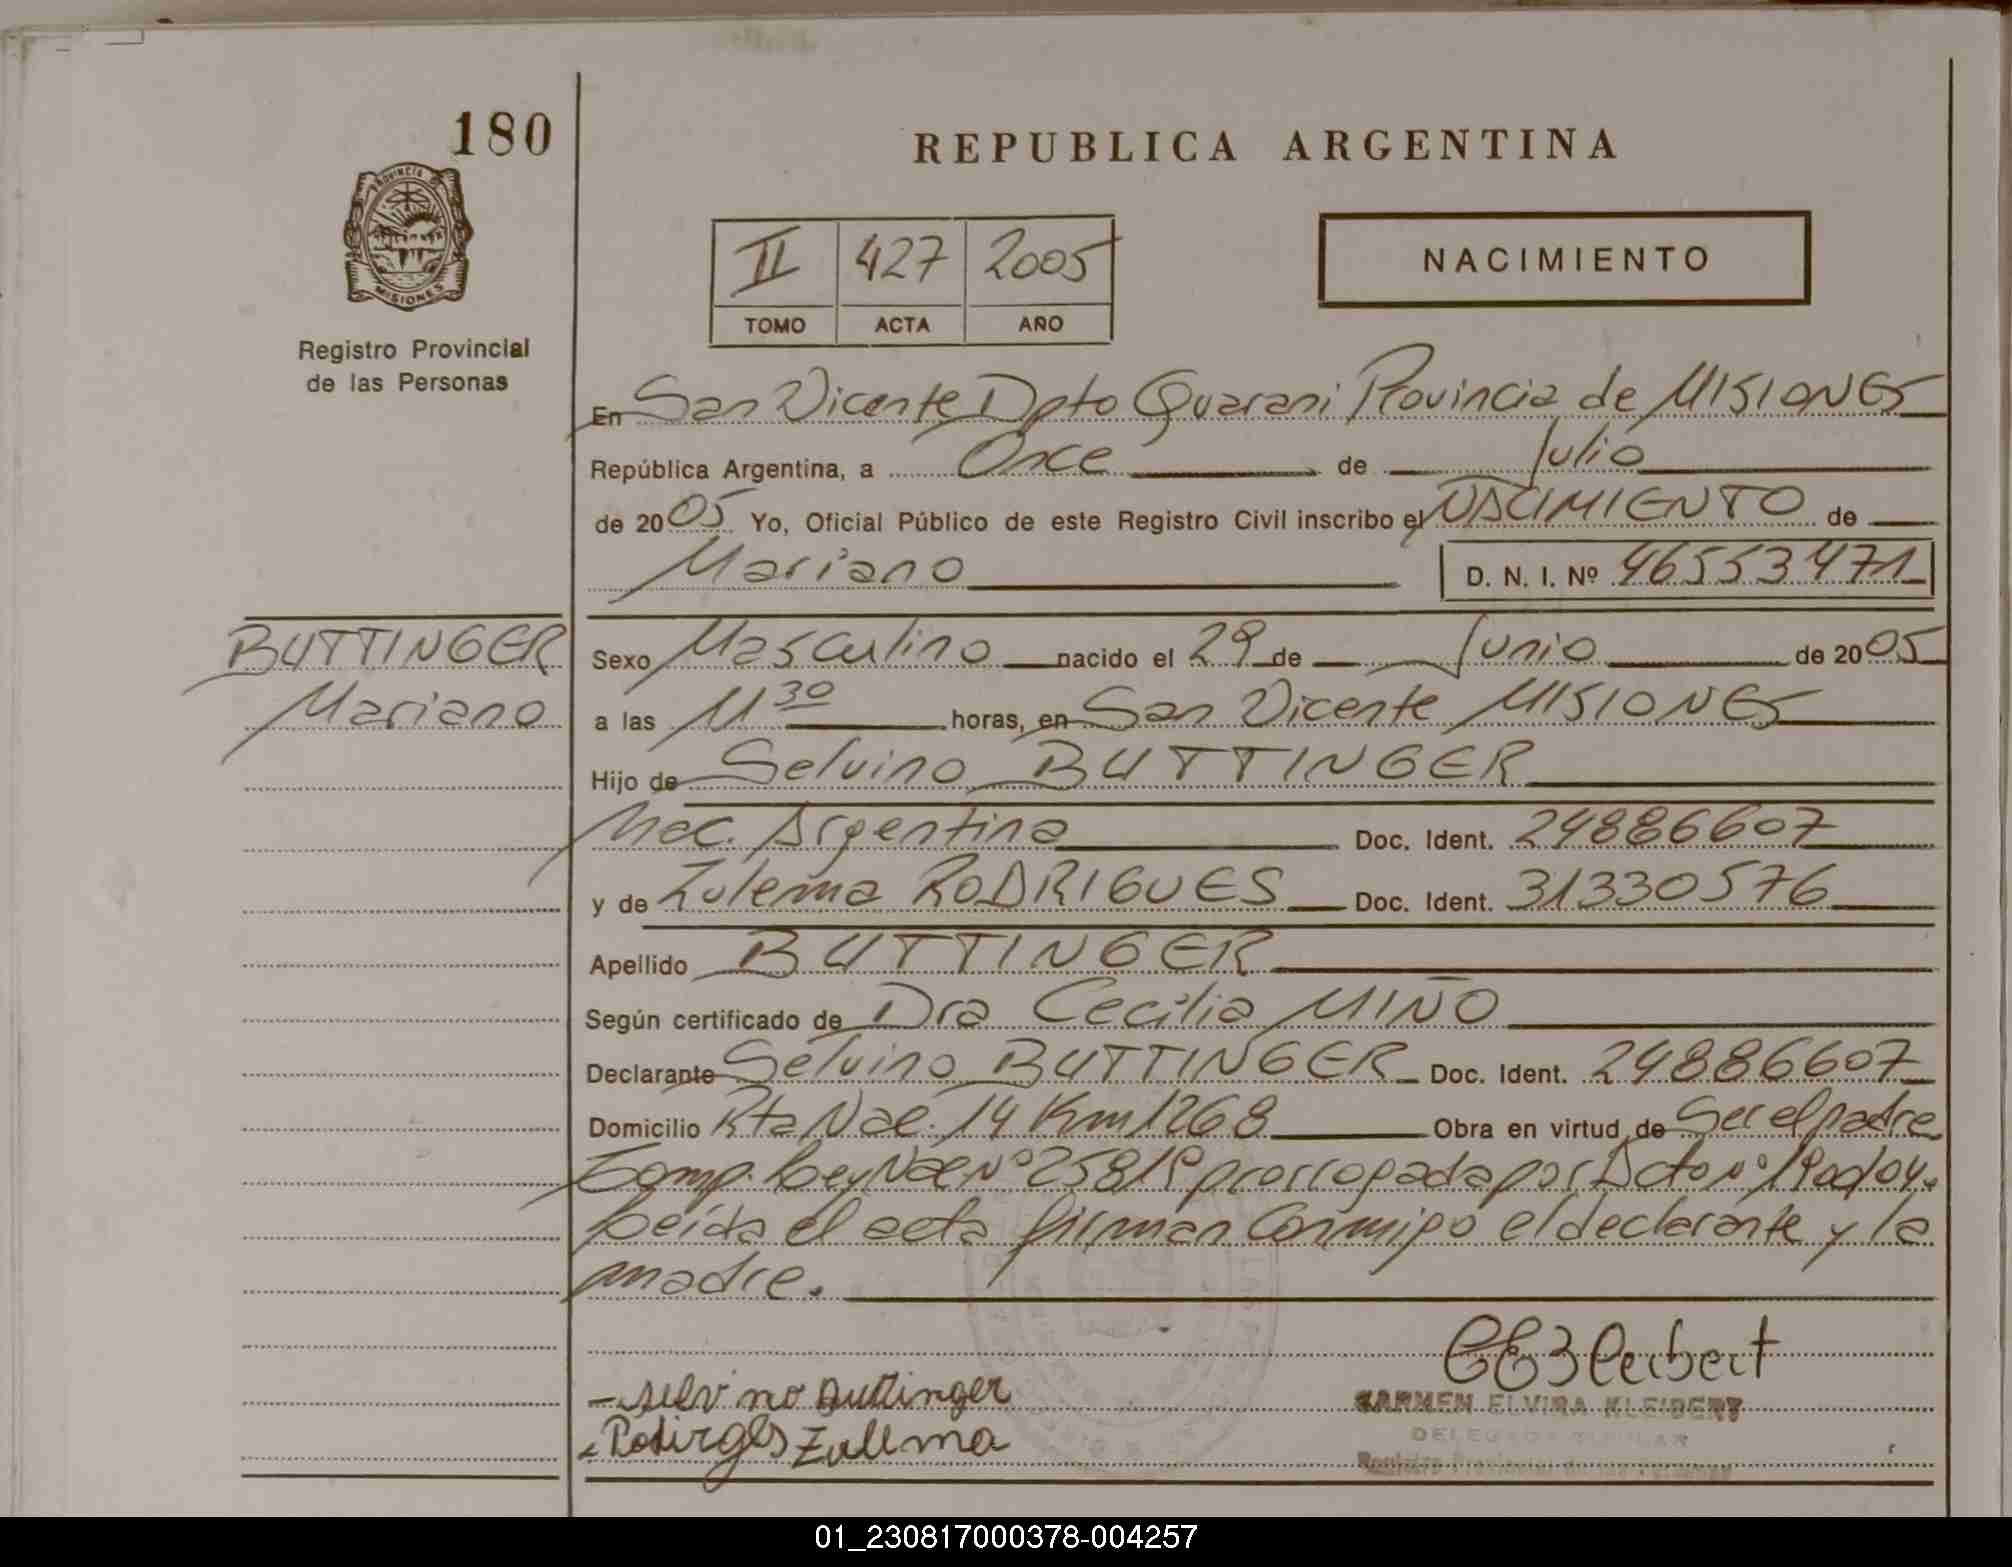 180
REPUBLICA ARGENTINA
PROVINCIA DE
MISIONES
II 427 2005
TOMO ACTA AÑO
NACIMIENTO
Registro Provincial
de las Personas
En San Vicente Dpto Guarani Provincia de MISIONES
República Argentina, a Once de Julio
de 2005 Yo, Oficial Público de este Registro Civil inscribo el NACIMIENTO de
Mariano D. N. I. Nº 46553471
BUTTINGER
Mariano
Sexo Masculino nacido el 29 de Junio de 2005
a las 11 30 horas, en San Vicente MISIONES
Hijo de Selvino BUTTINGER
Nac. Argentina Doc. Ident. 24886607
y de Zulema RODRIGUES Doc. Ident. 31330576
Apellido BUTTINGER
Según certificado de Dra Cecilia MIÑO
Declarante Selvino BUTTINGER Doc. Ident. 24886607
Domicilio Rta Nac. 14 Km 1268 Obra en virtud de Ser el padre
Ley Nac Nº 25819 prorrogada por Dcto Nº
Leída el acta firman Conmigo el declarante y la
madre.
selvino Buttinger
Rodirges Zulema
CEKleibert
CARMEN ELVIRA KLEIBERT
DELEGADA TITULAR
Registro Provincial de las Personas
01_230817000378-004257